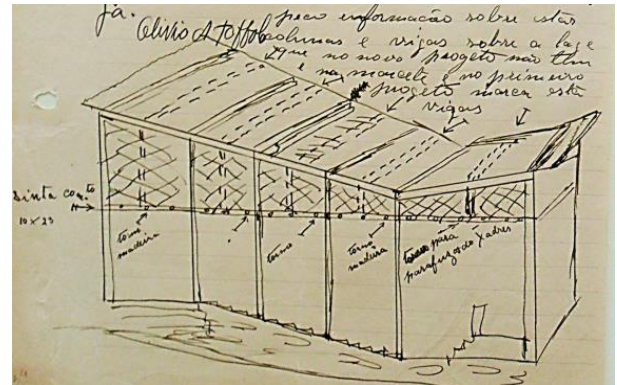 já. peço informação sobre estas
Olivio A Toffoli colunas e vigas sobre a lage
que no novo progeto não tem
e na marcete e no primeiro
progeto marca esta
vigas
sinta con.to
10 x 23
torno
madeira
torno
torno
madeira
para
parafuzo do xadres